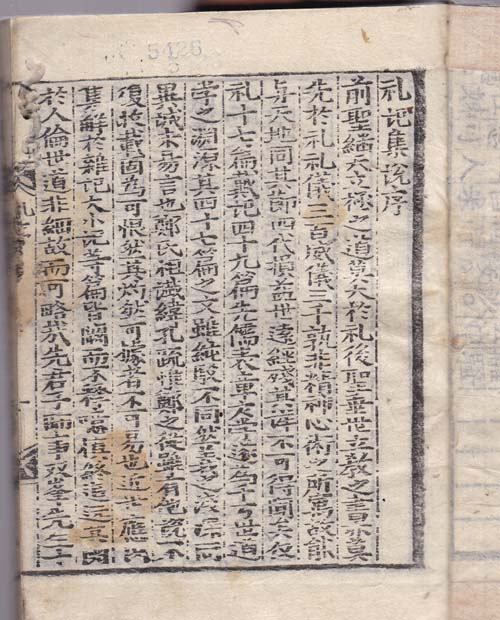 5426
礼記集說序
前聖繼天立極之道莫大於礼後聖垂世立教之書亦莫
先於礼礼儀三百威儀三千孰非精神心術之所寓故能
與天地同其節四代損益世遠經殘其詳不可得聞矣仪
礼十七篇戴記四十九篇先儒表章庸学遂為千万世道
学之淵源其四十七篇之文雖純駁不同然義之浅深同
異誠未易言也鄭氏祖讖緯孔疏惟鄭之從雖有他說不
復收載固為可恨然其灼然可據者不可易也近世應氏
集解於雜記大小記等篇皆闕而不釋噫慎終追遠其関
於人倫世道非細故而可略哉先君子師事双峯先生十